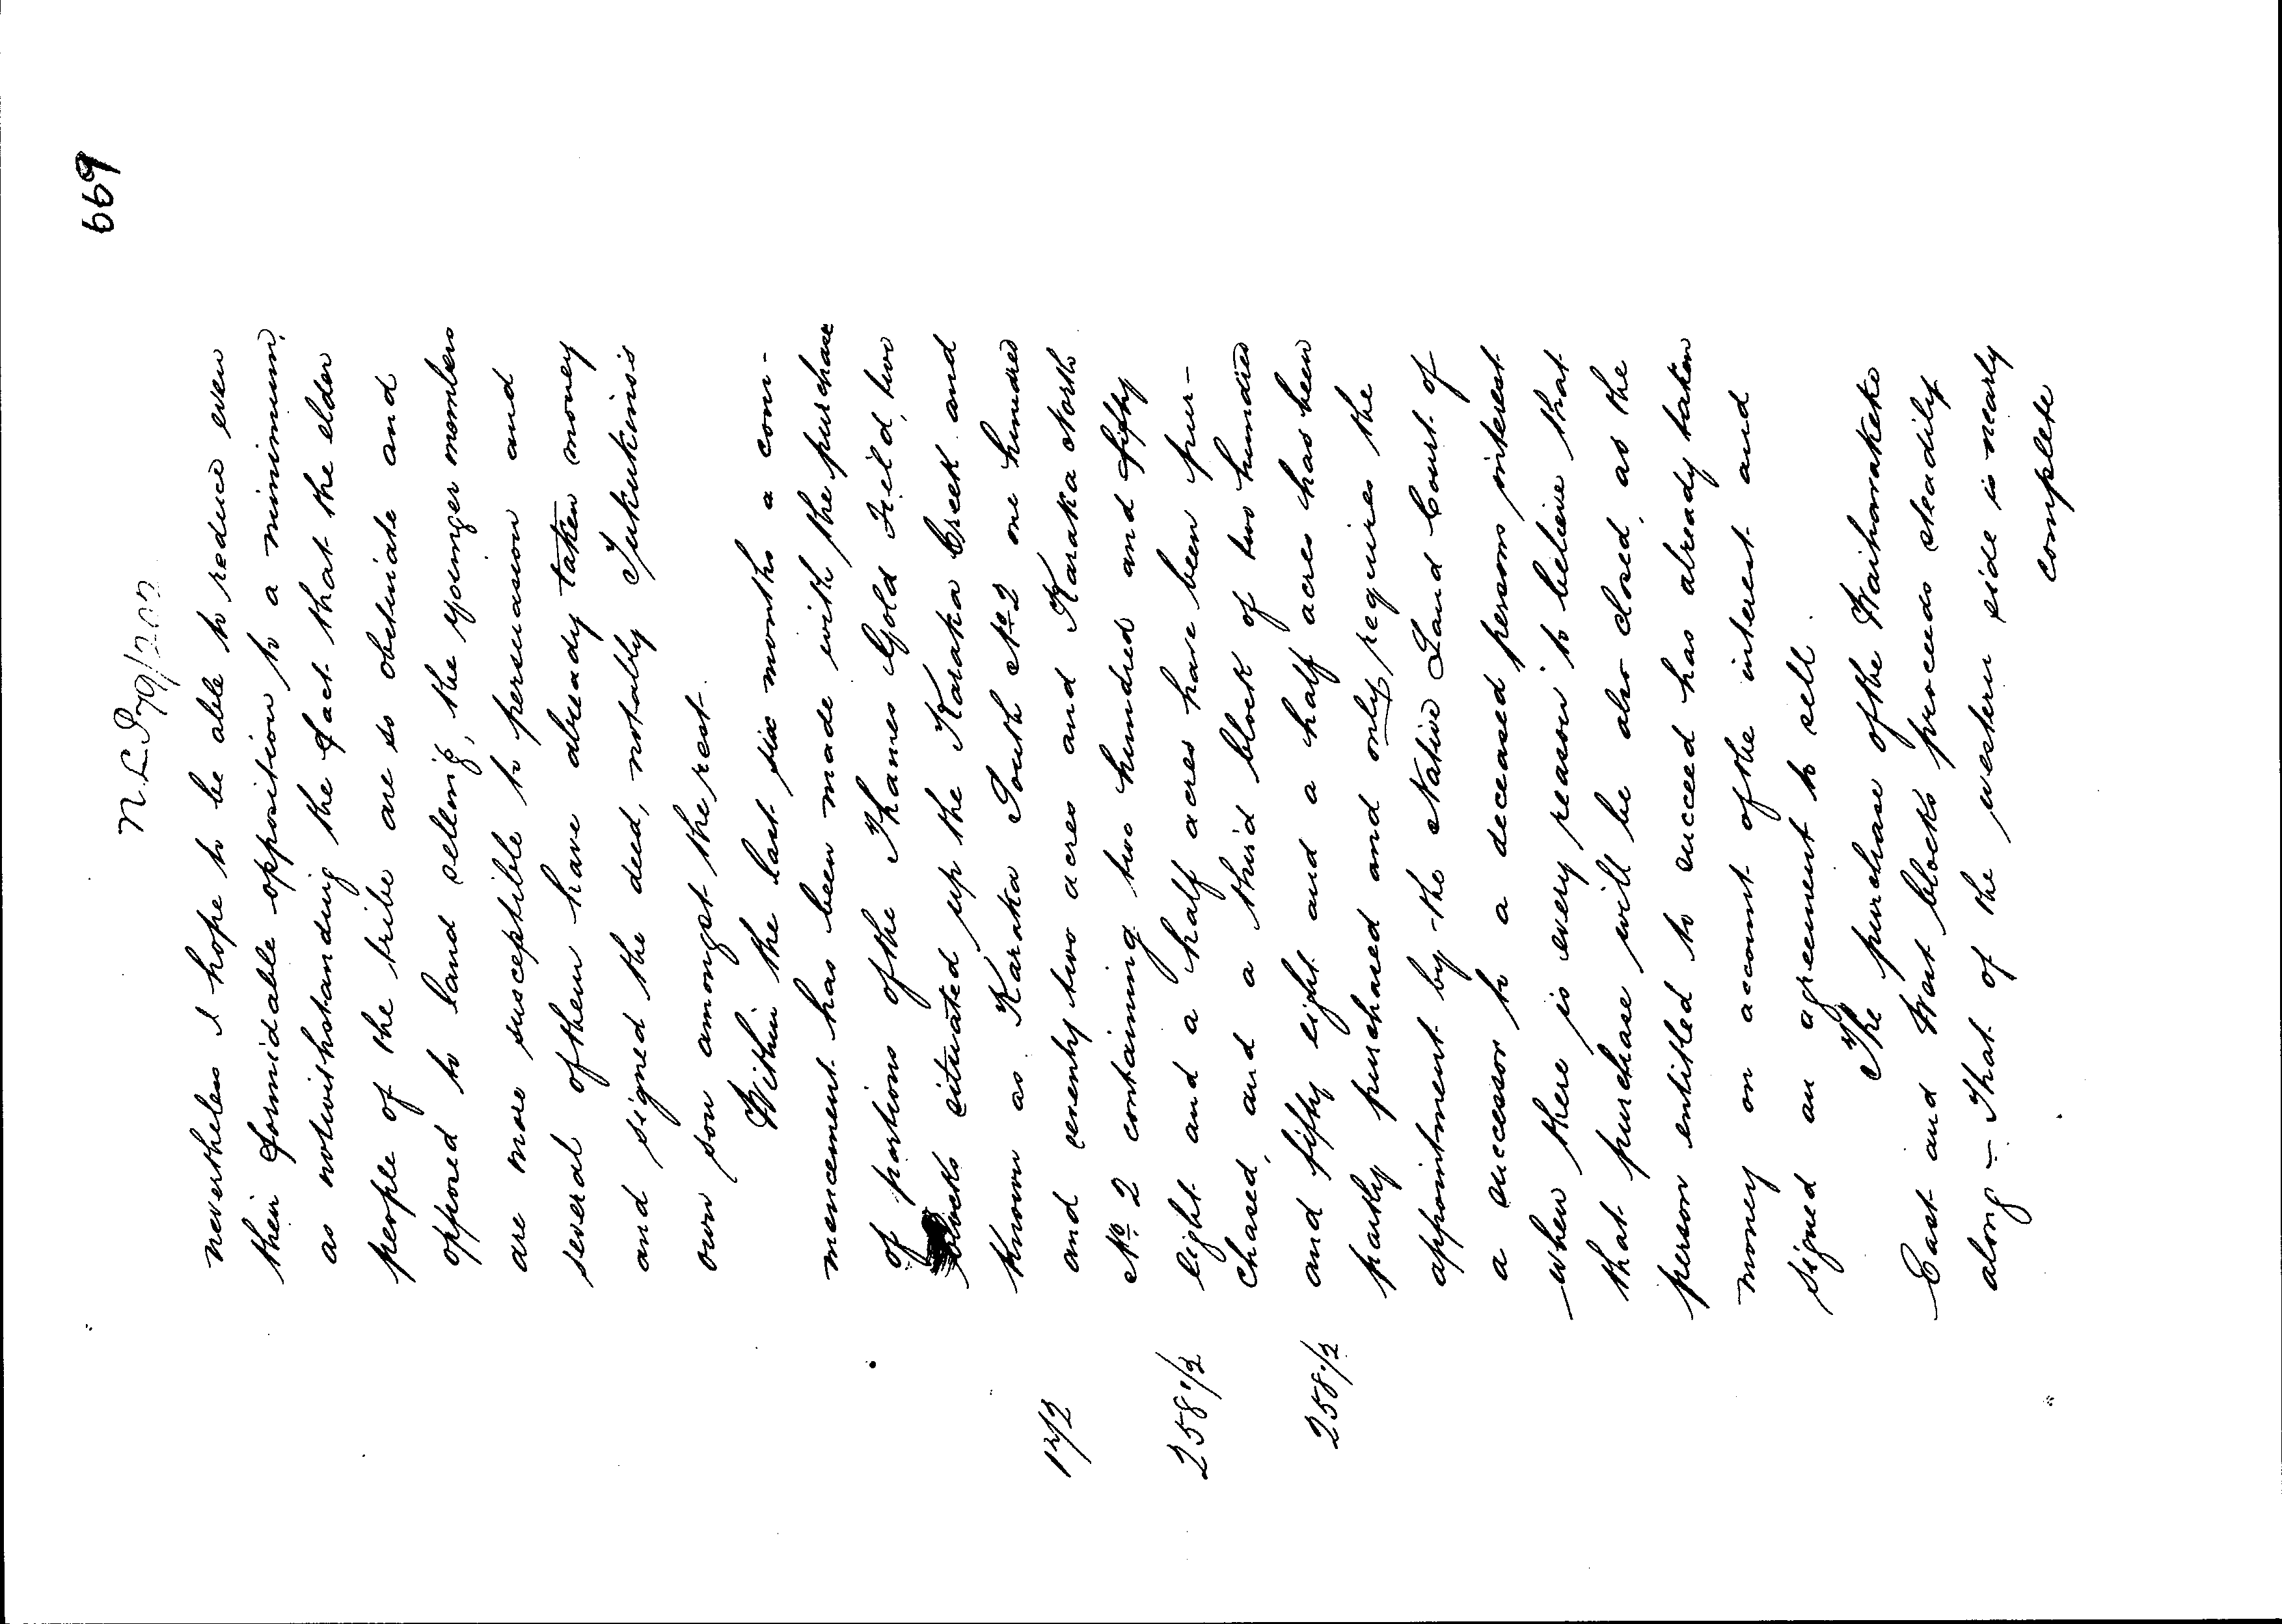 669
N.L.P 79/202
nevertheless I hope to be able to reduce even
their formidable opposition to a minimum,
as notwithstanding the fact that the elder
people of the tribe are so obstinate and
opposed to land selling, the younger members
are more susceptible to persuasion and
several of them have already taken money
and signed the deed, notably Tukukinos
own son amongst the rest.
Within the last six months a com-
mencement has been made with the purchase
of portions of the Thames Gold Field, two
blocks situated up the Karaka Creek and
known as Karaka South No 2 one hundred
172 and seventy two acres and Karaka North
No 2 containing two hundred and fifty
258 1/2 eight and a half acres have been pur-
chased, and a third block of two hundred
258 1/2 and fifty eight and a half acres has been
partly purchased and only requires the
appointment by the Native Land Court of
a successor to a deceased persons interest
when there is every reason to believe that
that purchase will be also closed, as the
person entitled to succeed has already taken
money on account of the interest and
signed an agreement to sell.
The purchase of the Waiharakeke
East and West blocks proceeds steadily
along – That of the western side is nearly
complete